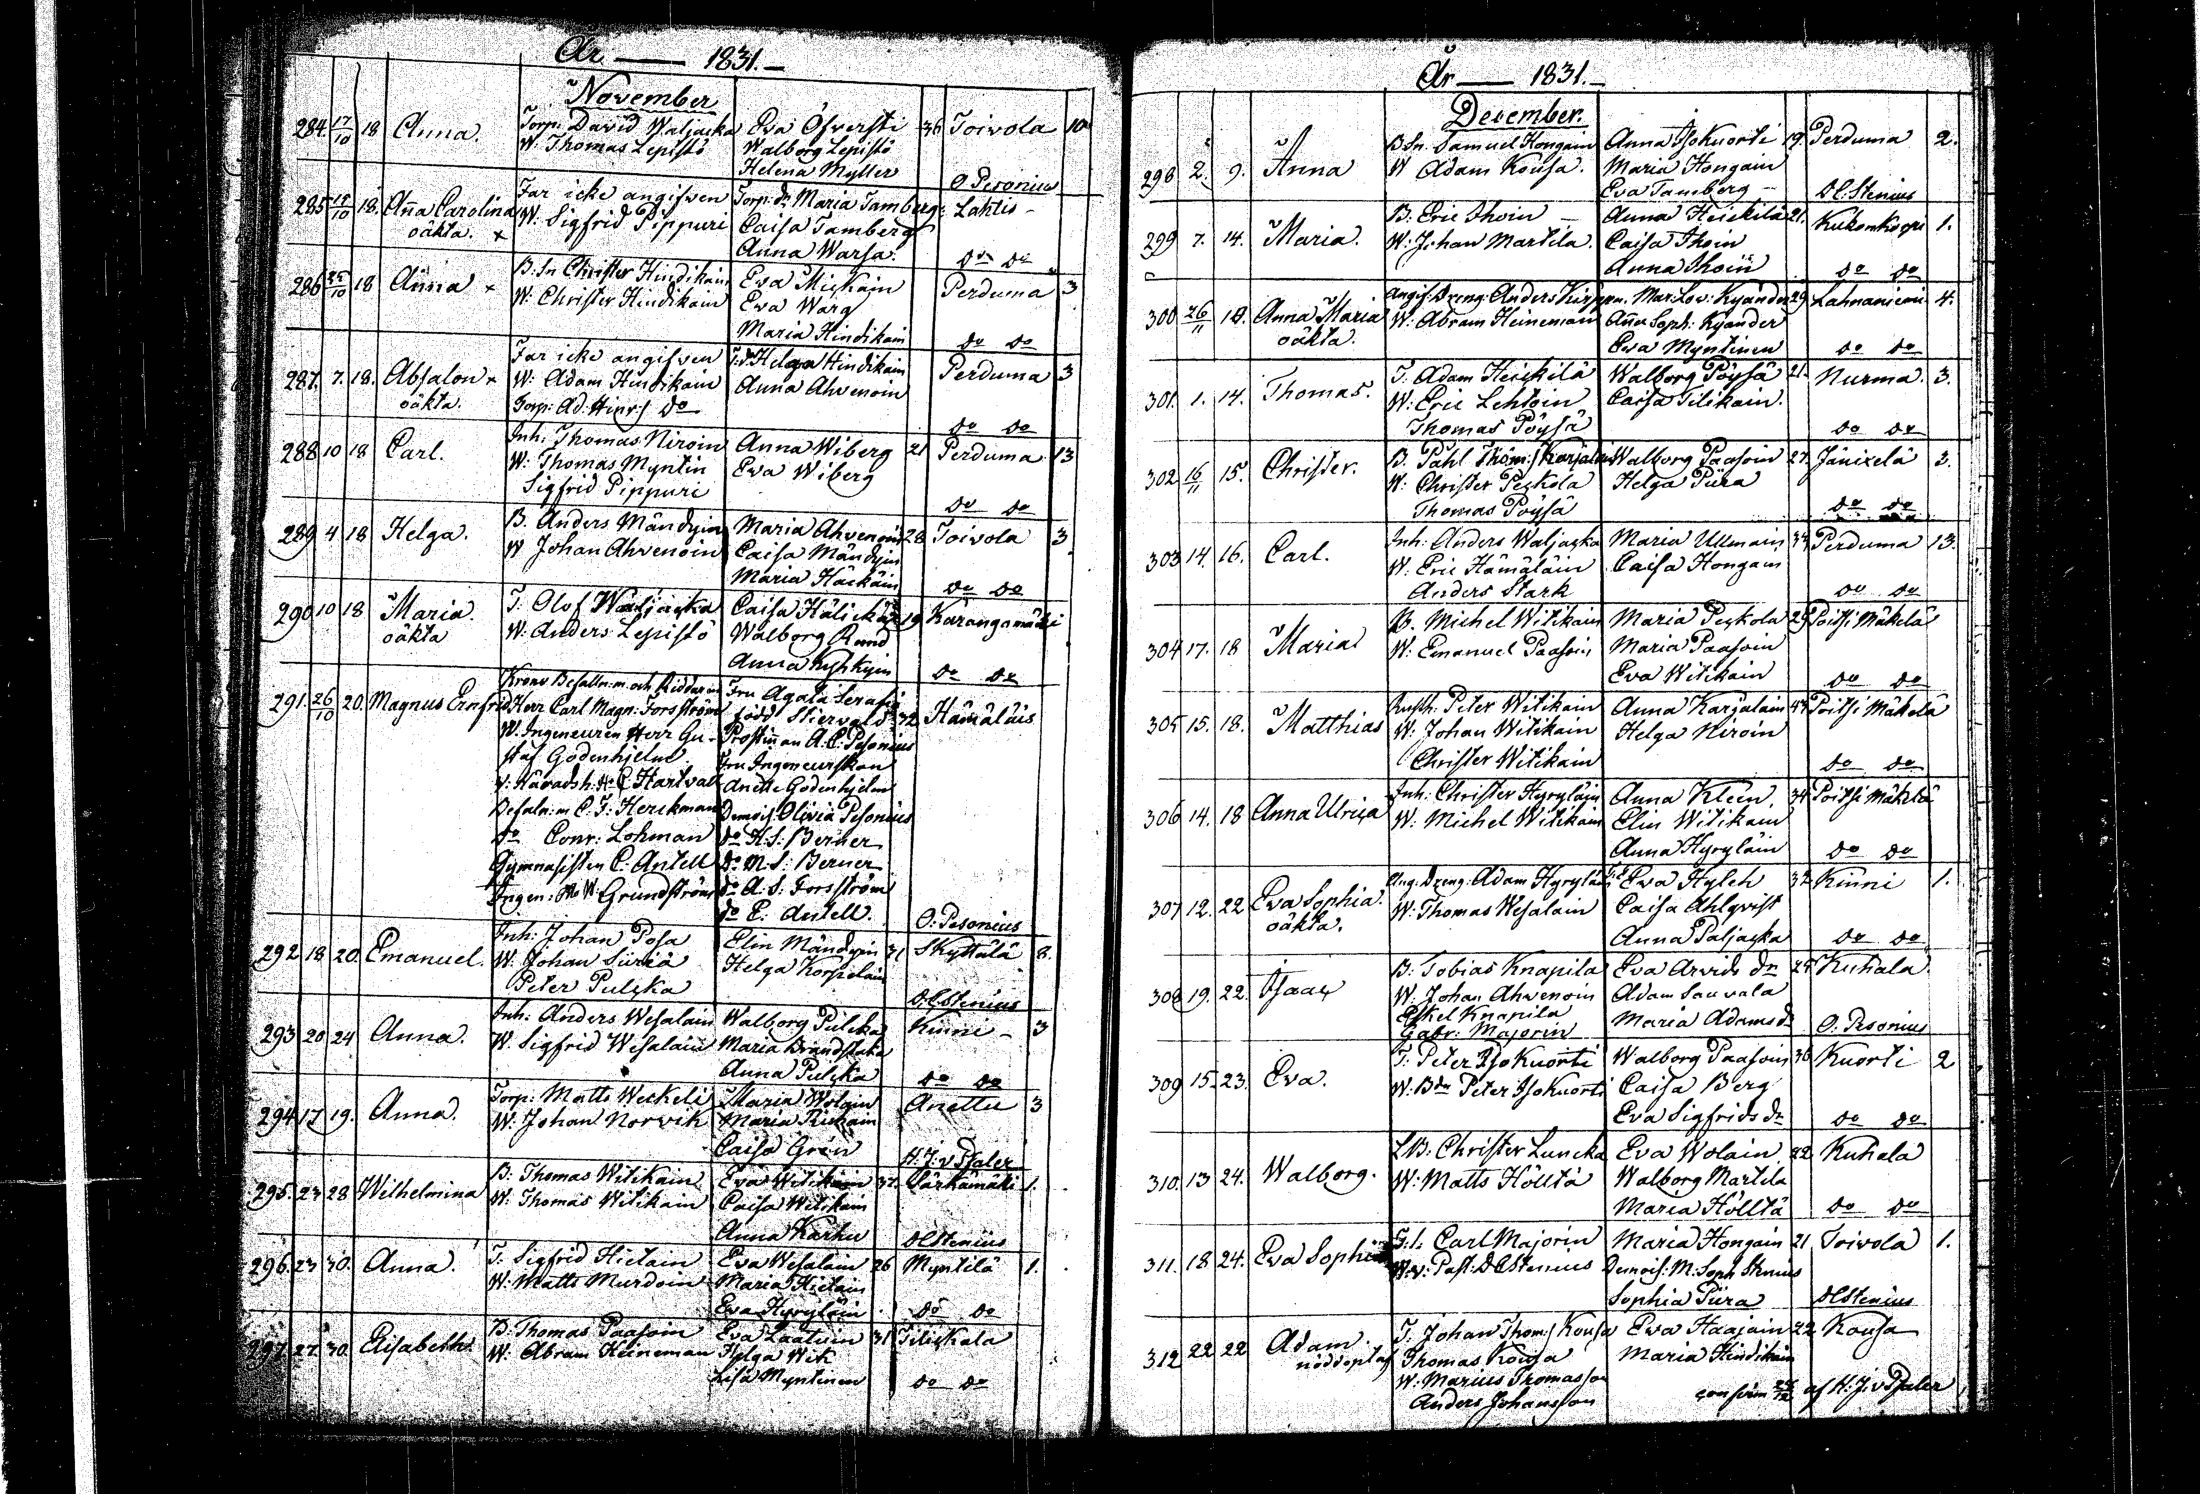 År — 1831.
November
284 17/10 18 Anna. Torp: David Waljacka Eva Öfversti 36 Toivola 10
W. Thomas Lepistö Walborg Lepistö
Helena Myller O Pesonius
285 18. Anna Carolina Far icke angifven Torp: dr Maria Tamberg Lahtis
oäkta. W. Sigfrid Pippuri Caisa Tamberg
Anna Warsa. do do
286 25/10 18 Anna B. Sn Christer Hindikain Eva Miskain Perduma 3
W. Christer Hindikain Eva Warg
Maria Hindikain do do
287. 7. 18. Absalon Far icke angifven T. dr Helga Hindikain Perduma 3
oäkta. W: Adam Hindikain Anna Ahvenoin
Torp: Ad. Hinr:s do do do
288 10 18 Carl. Inh: Thomas Niroin Anna Wiberg 21 Perduma 13
W: Thomas Myntin Eva Wiberg
Sigfrid Pippuri do do
289 4 18 Helga. B. Anders Mändyin Maria Ahvenoin 28 Toivola 3
W Johan Ahvenoin Caisa Mändyin
Maria Häckäin do do
290 10 18 Maria. T: Olof Waljacka Caisa Hälickä 19 Karangamäki
oäkta W. Anders Lepistö Walborg Rand
Anna Kyhkyin do do
291. 26/10 20. Magnus Ernfrid Krono Befaln:m. och Riddaren Fru Agata Serafia
Herr Carl Magn: Forsström född Stiervald 32 Hämäläis
W. Ingeneuren Herr Gu- Prostinnan A. C. Pesonius
staf Godenhjelm Fru Ingeneurskan
v: Häradsh: Hr C Hartvall Anette Godenhjelm
Befaln:m C. F: Herckman Demois: Olivia Pesonius
do Conr: Lohman do H. S: Berner
Gymnasisten C. Antell do N. S: Berner
Ingen: W: Grundström do A. S: Forsström
do E: Antell. O: Pesonius
292 18 20 Emanuel. Inh: Johan Posa Elin Mändyin 31 Skyttälä 8.
W. Johan Siiriä Helga Korpelain
Peter Pulcka D. C Stenius
293 20 24 Anna. Inh: Anders Wesalain Walborg Pulcka Kinni 3
W. Sigfrid Wesalain Maria Brandstake
Anna Pulcka do do
294 17 19. Anna. Torp: Matts Weckeli Maria Wolain Anettu 3
W: Johan Norvik Maria Rickain
Caisa Grön H. J. v Pfaler
295. 23 28 Wilhelmina B. Thomas Witikain Eva Witikain 37. Särkämäki 1.
W: Thomas Witikain Caisa Witikain
Anna Karhu D C Stenius
296. 23 30. Anna. T. Sigfrid Hietain Eva Wesalain 26 Myntilä 1.
W: Matts Murdoin Maria Hietain
Eva Hyryläin do do
297. 27. 30. Elisabeth. B. Thomas Paasoin Eva Laatuin 31 Tiliskala
W: Abram Heineman Helga Wik
Lisa Myntinen do do
År — 1831.
December.
298 2. 9. Anna B. Sn. Samuel Hongain Anna Isokuorti 19. Perduma 2.
W Adam Kousa. Maria Hongain
Eva Tamberg D C. Stenius
299 7. 14. Maria. B: Eric Ihoin Anna Heickilä 21. Kukonkorpi 1.
W: Johan Martila. Caisa Ihoin
Anna Ihoin do do
300 26/11 18. Anna Maria Angif. Dreng: Anders Kirppu. Mar: Lov: Kyander 29 Lahnaniemi 4.
oäkta. W: Abram Heineman Anna Soph: Kyander
Eva Myntinen do do
301. 1. 14. Thomas. T: Adam Heickilä Walborg Pöysä 21. Nurma. 3.
W: Eric Lehtoin Caisa Tilikain.
Thomas Pöysä do do
302 16/11 15. Christer. B. Påhl Thom:s Karjalain Walborg Paasoin 27. Jänickelä 3.
W: Christer Peckola Helga Püra
Thomas Pöysä do do
303 14. 16. Carl. Inh: Anders Waljacka Maria Ullmain 34 Perduma 13.
W. Eric Hämäläin Caisa Hongain
Anders Stark do do
304 17. 18 Maria B. Michel Witikain Maria Peckola 29 Poitsi Mäkelä
W: Emanuel Paasoin Maria Paasoin
Eva Witikain do do
305 15. 18. Matthias Rusth: Peter Witikain Anna Karjalain 43 Poitsi Mäkelä
W: Johan Witikain Helga Niroin
Christer Witikain do do
306 14. 18 Anna Ulrica Inh: Christer Hyryläin Anna Kleen. 34 Poitsi Mäkelä
W: Michel Witikain Elin Witikain
Anna Hyryläin do do
307 12. 22 Eva Sophia. Ang. Dreng: Adam Hyryläin Eva Hyleh 32 Kinni 1.
oäkta. W: Thomas Wesalain Caisa Ahlqvist
Anna Paljacka do do
308 19. 22. Isaac B: Tobias Knapila Eva Arvids dr 25 Kuhala
W. Johan Ahvenoin Adam Sauvala
Eskel Knapila Maria Adamsdr O. Pesonius
Gabr: Majorin
309 15. 23. Eva. T: Peter Isokuorti Walborg Paasoin 36 Kuorti 2
W: Bdn Peter Isokuorti Caisa Berg
Eva Sigfridsdr do do
310. 13 24. Walborg. L.B: Christer Luncka Eva Wolain 22 Kuhala
W: Matts Hölltä Walborg Martila
Maria Hölltä do do
311. 18 24. Eva Sophia Carl Majorin Maria Hongain 21 Toivola 1.
W. v: Past: D C Stenius Demois: M: Soph Stenius
Sophia Püra D C Stenius
312 22 22 Adam. T: Johan Thom:s Kousa Eva Haajain 22 Kousa
nöddöpt af Thomas Kousa Maria Hindikain
W: Marius Thomasson
Anders Johansson confirm 25/12 af H. J. v Pfaler